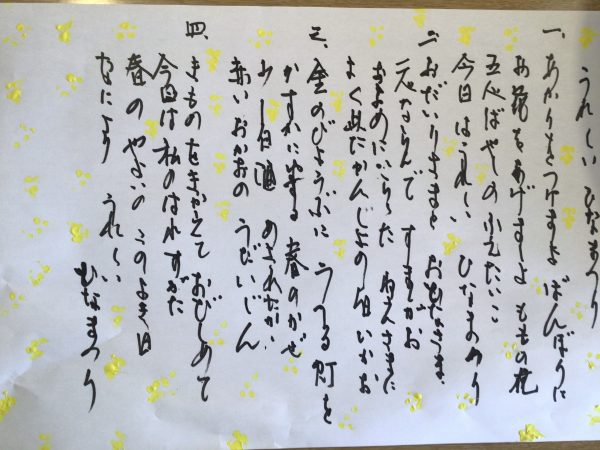 うれしい ひなまつり
一、あかりをつけましょ ぼんぼりに
お花をあげましょ ももの花
五人ばやしの ふえたいこ
今日はうれしい ひなまつり
二、おだいりさまと おひなさま
二人ならんで すましがお
およめにいらした ねえさまに
よく似たかんじょの 白いかお
三、金のびょうぶに うつる灯を
かすかにゆする 春のかぜ
少し白酒 めされたか
赤いおかおの うだいじん
四、きものをきかえて おびしめて
今日は私のはれすがた
春のやよいの このよき日
なにより うれしい ひなまつり